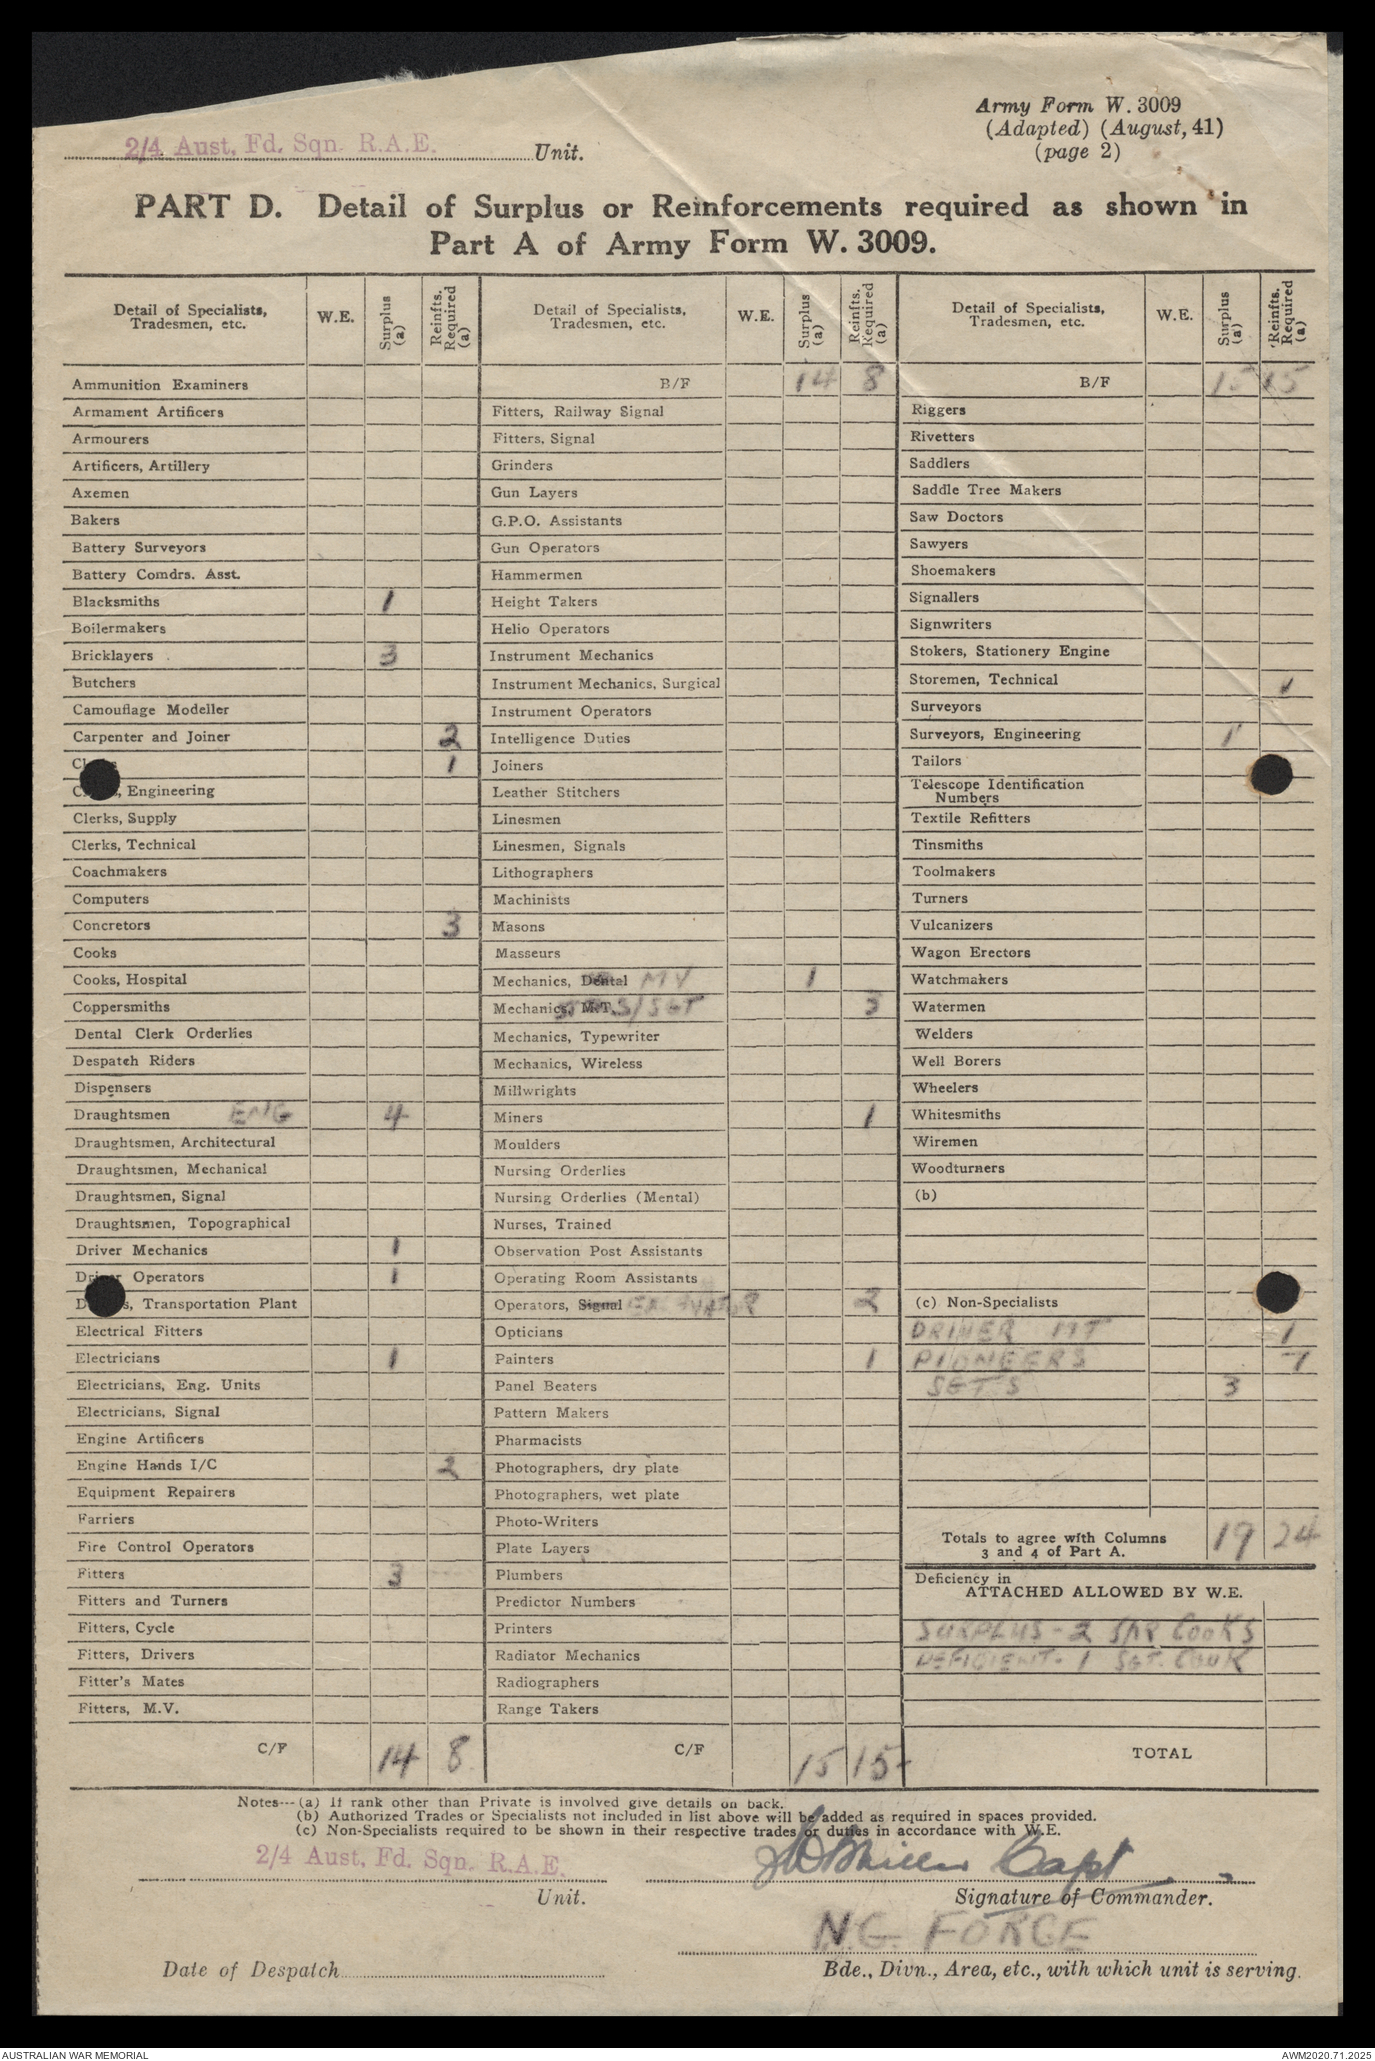 Army Form W. 3009
(Adapted) (August, 41)
(page 2)
2/4 Aust. Fd. Sqn. R.A.E. Unit.
PART D. Detail of Surplus or Reinforcements required as shown in
Part A of Army Form W. 3009.
Detail of Specialists, Tradesmen, etc. W.E. Surplus (a) Reinfts. Required (a)
Ammunition Examiners
Armament Artificers
Armourers
Artificers, Artillery
Axemen
Bakers
Battery Surveyors
Battery Comdrs. Asst.
Blacksmiths 1
Boilermakers
Bricklayers 3
Butchers
Camouflage Modeller
Carpenter and Joiner 2
1
, Engineering
Clerks, Supply
Clerks, Technical
Coachmakers
Computers
Concretors 3
Cooks
Cooks, Hospital
Coppersmiths
Dental Clerk Orderlies
Despatch Riders
Dispensers
Draughtsmen ENG 4
Draughtsmen, Architectural
Draughtsmen, Mechanical
Draughtsmen, Signal
Draughtsmen, Topographical
Driver Mechanics 1
Driver Operators 1
, Transportation Plant
Electrical Fitters
Electricians 1
Electricians, Eng. Units
Electricians, Signal
Engine Artificers
Engine Hands I/C 2
Equipment Repairers
Farriers
Fire Control Operators
Fitters 3
Fitters and Turners
Fitters, Cycle
Fitters, Drivers
Fitter's Mates
Fitters, M.V.
C/F 14 8
Detail of Specialists, Tradesmen, etc. W.E. Surplus (a) Reinfts. Required (a)
B/F 14 8
Fitters, Railway Signal
Fitters, Signal
Grinders
Gun Layers
G.P.O. Assistants
Gun Operators
Hammermen
Height Takers
Helio Operators
Instrument Mechanics
Instrument Mechanics, Surgical
Instrument Operators
Intelligence Duties
Joiners
Leather Stitchers
Linesmen
Linesmen, Signals
Lithographers
Machinists
Masons
Masseurs
Mechanics, Dental MV 1
Mechanics, M.T. S/SGT 3
Mechanics, Typewriter
Mechanics, Wireless
Millwrights
Miners 1
Moulders
Nursing Orderlies
Nursing Orderlies (Mental)
Nurses, Trained
Observation Post Assistants
Operating Room Assistants
Operators, Signal EXCAVATOR 2
Opticians
Painters 1
Panel Beaters
Pattern Makers
Pharmacists
Photographers, dry plate
Photographers, wet plate
Photo-Writers
Plate Layers
Plumbers
Predictor Numbers
Printers
Radiator Mechanics
Radiographers
Range Takers
C/F 15 15
Detail of Specialists, Tradesmen, etc. W.E. Surplus (a) Reinfts. Required (a)
B/F 15 15
Riggers
Rivetters
Saddlers
Saddle Tree Makers
Saw Doctors
Sawyers
Shoemakers
Signallers
Signwriters
Stokers, Stationery Engine
Storemen, Technical 1
Surveyors
Surveyors, Engineering 1
Tailors
Telescope Identification
Numbers
Textile Refitters
Tinsmiths
Toolmakers
Turners
Vulcanizers
Wagon Erectors
Watchmakers
Watermen
Welders
Well Borers
Wheelers
Whitesmiths
Wiremen
Woodturners
(b)
(c) Non-Specialists
DRIVER MT 1
PIONEERS 7
SGTS 3
Totals to agree with Columns
3 and 4 of Part A. 19 24
Deficiency in
ATTACHED ALLOWED BY W.E.
SURPLUS - 2 SPR COOKS
DEFICIENT - 1 SGT. COOK
TOTAL
Notes---(a) If rank other than Private is involved give details on back.
(b) Authorized Trades or Specialists not included in list above will be added as required in spaces provided.
(c) Non-Specialists required to be shown in their respective trades or duties in accordance with W.E.
2/4 Aust. Fd. Sqn. R.A.E.
Unit.
Capt
Signature of Commander.
N.G. FORCE
Date of Despatch
Bde., Divn., Area, etc., with which unit is serving.
AUSTRALIAN WAR MEMORIAL
AWM2020.71.2025